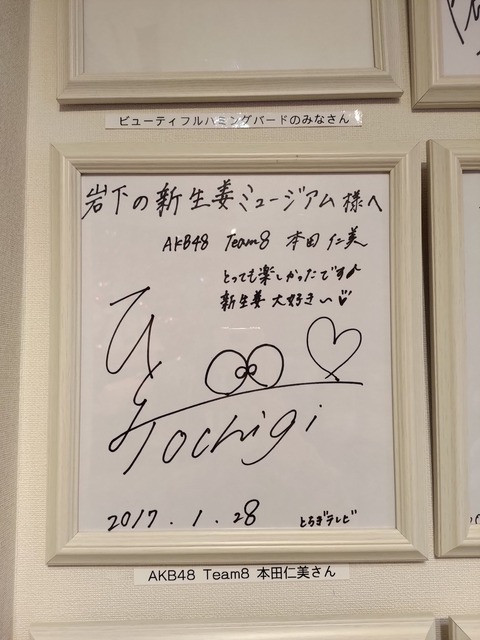 ビューティフルハミングバードのみなさん
岩下の新生姜ミュージアム様へ
AKB48 Team8 本田 仁美
とっても楽しかったです♪
新生姜 大好き〜♡
ひとみ
Tochigi
2017.1.28 とちぎテレビ
AKB48 Team8 本田仁美さん